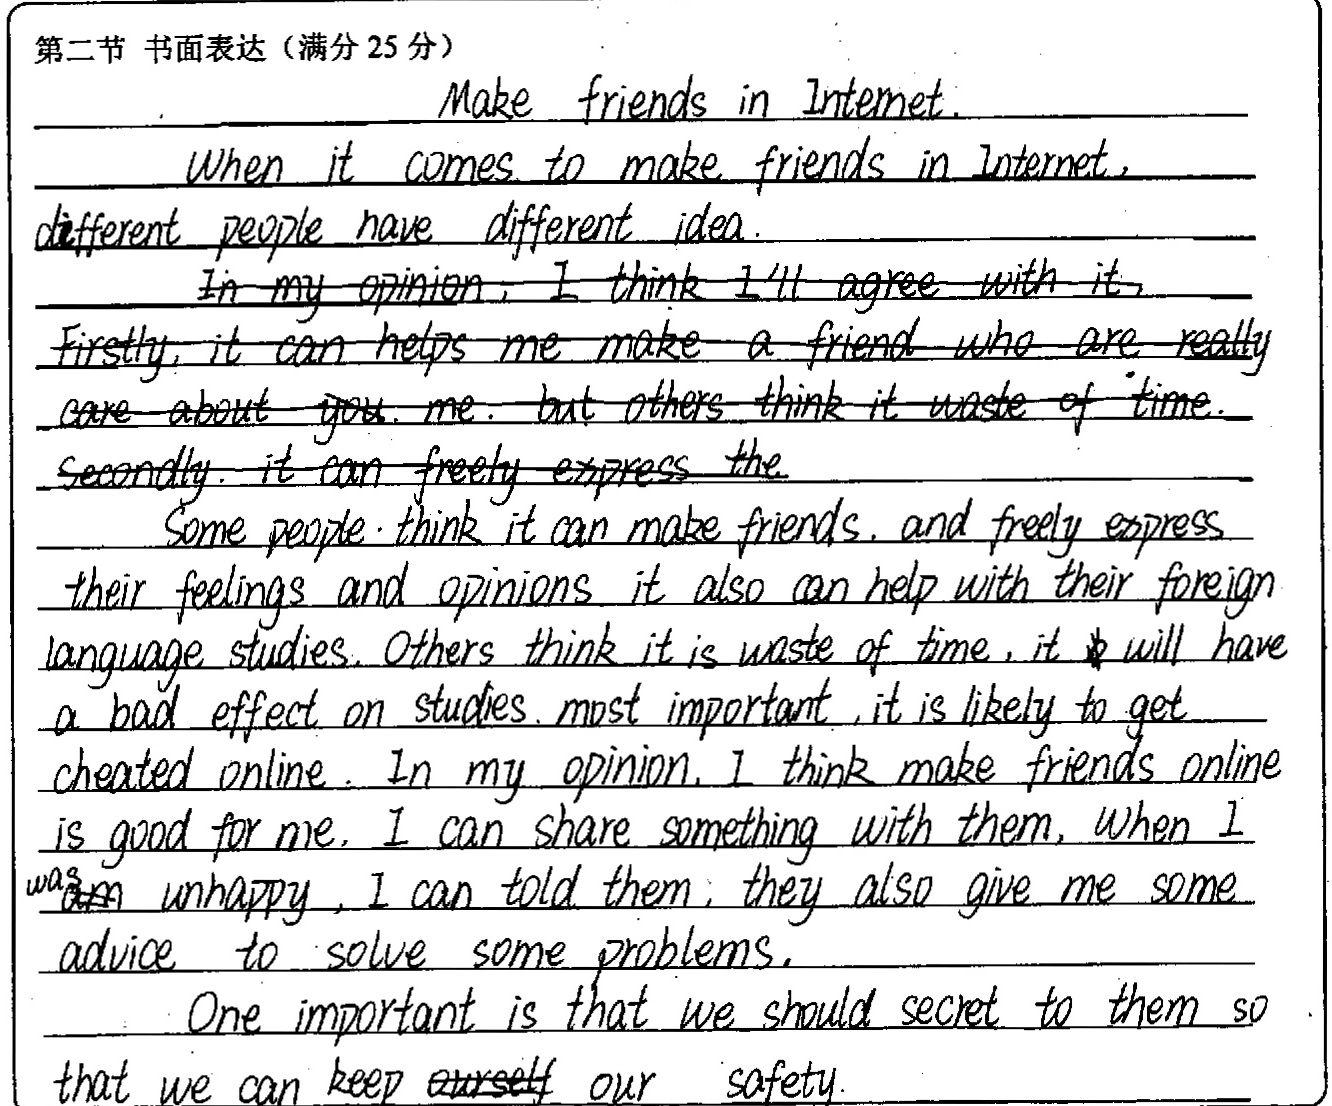 第二节 书面表达（满分25分）
Make friends in Internet.
When it comes to make friends in Internet,
different people have different idea.
In my opinion, I think I'll agree with it,
Firstly, it can helps me make a friend who are really
care about you. me. but others think it waste of time.
Secondly. it can freely express the
Some people think it can make friends. and freely express
their feelings and opinions it also can help with their foreign
language studies. Others think it is waste of time, it will have
a bad effect on studies. most important, it is likely to get
cheated online. In my opinion. I think make friends online
is good for me. I can share something with them, when I
was am unhappy, I can told them. they also give me some
advice to solve some problems.
One important is that we should secret to them so
that we can keep ourself our safety.